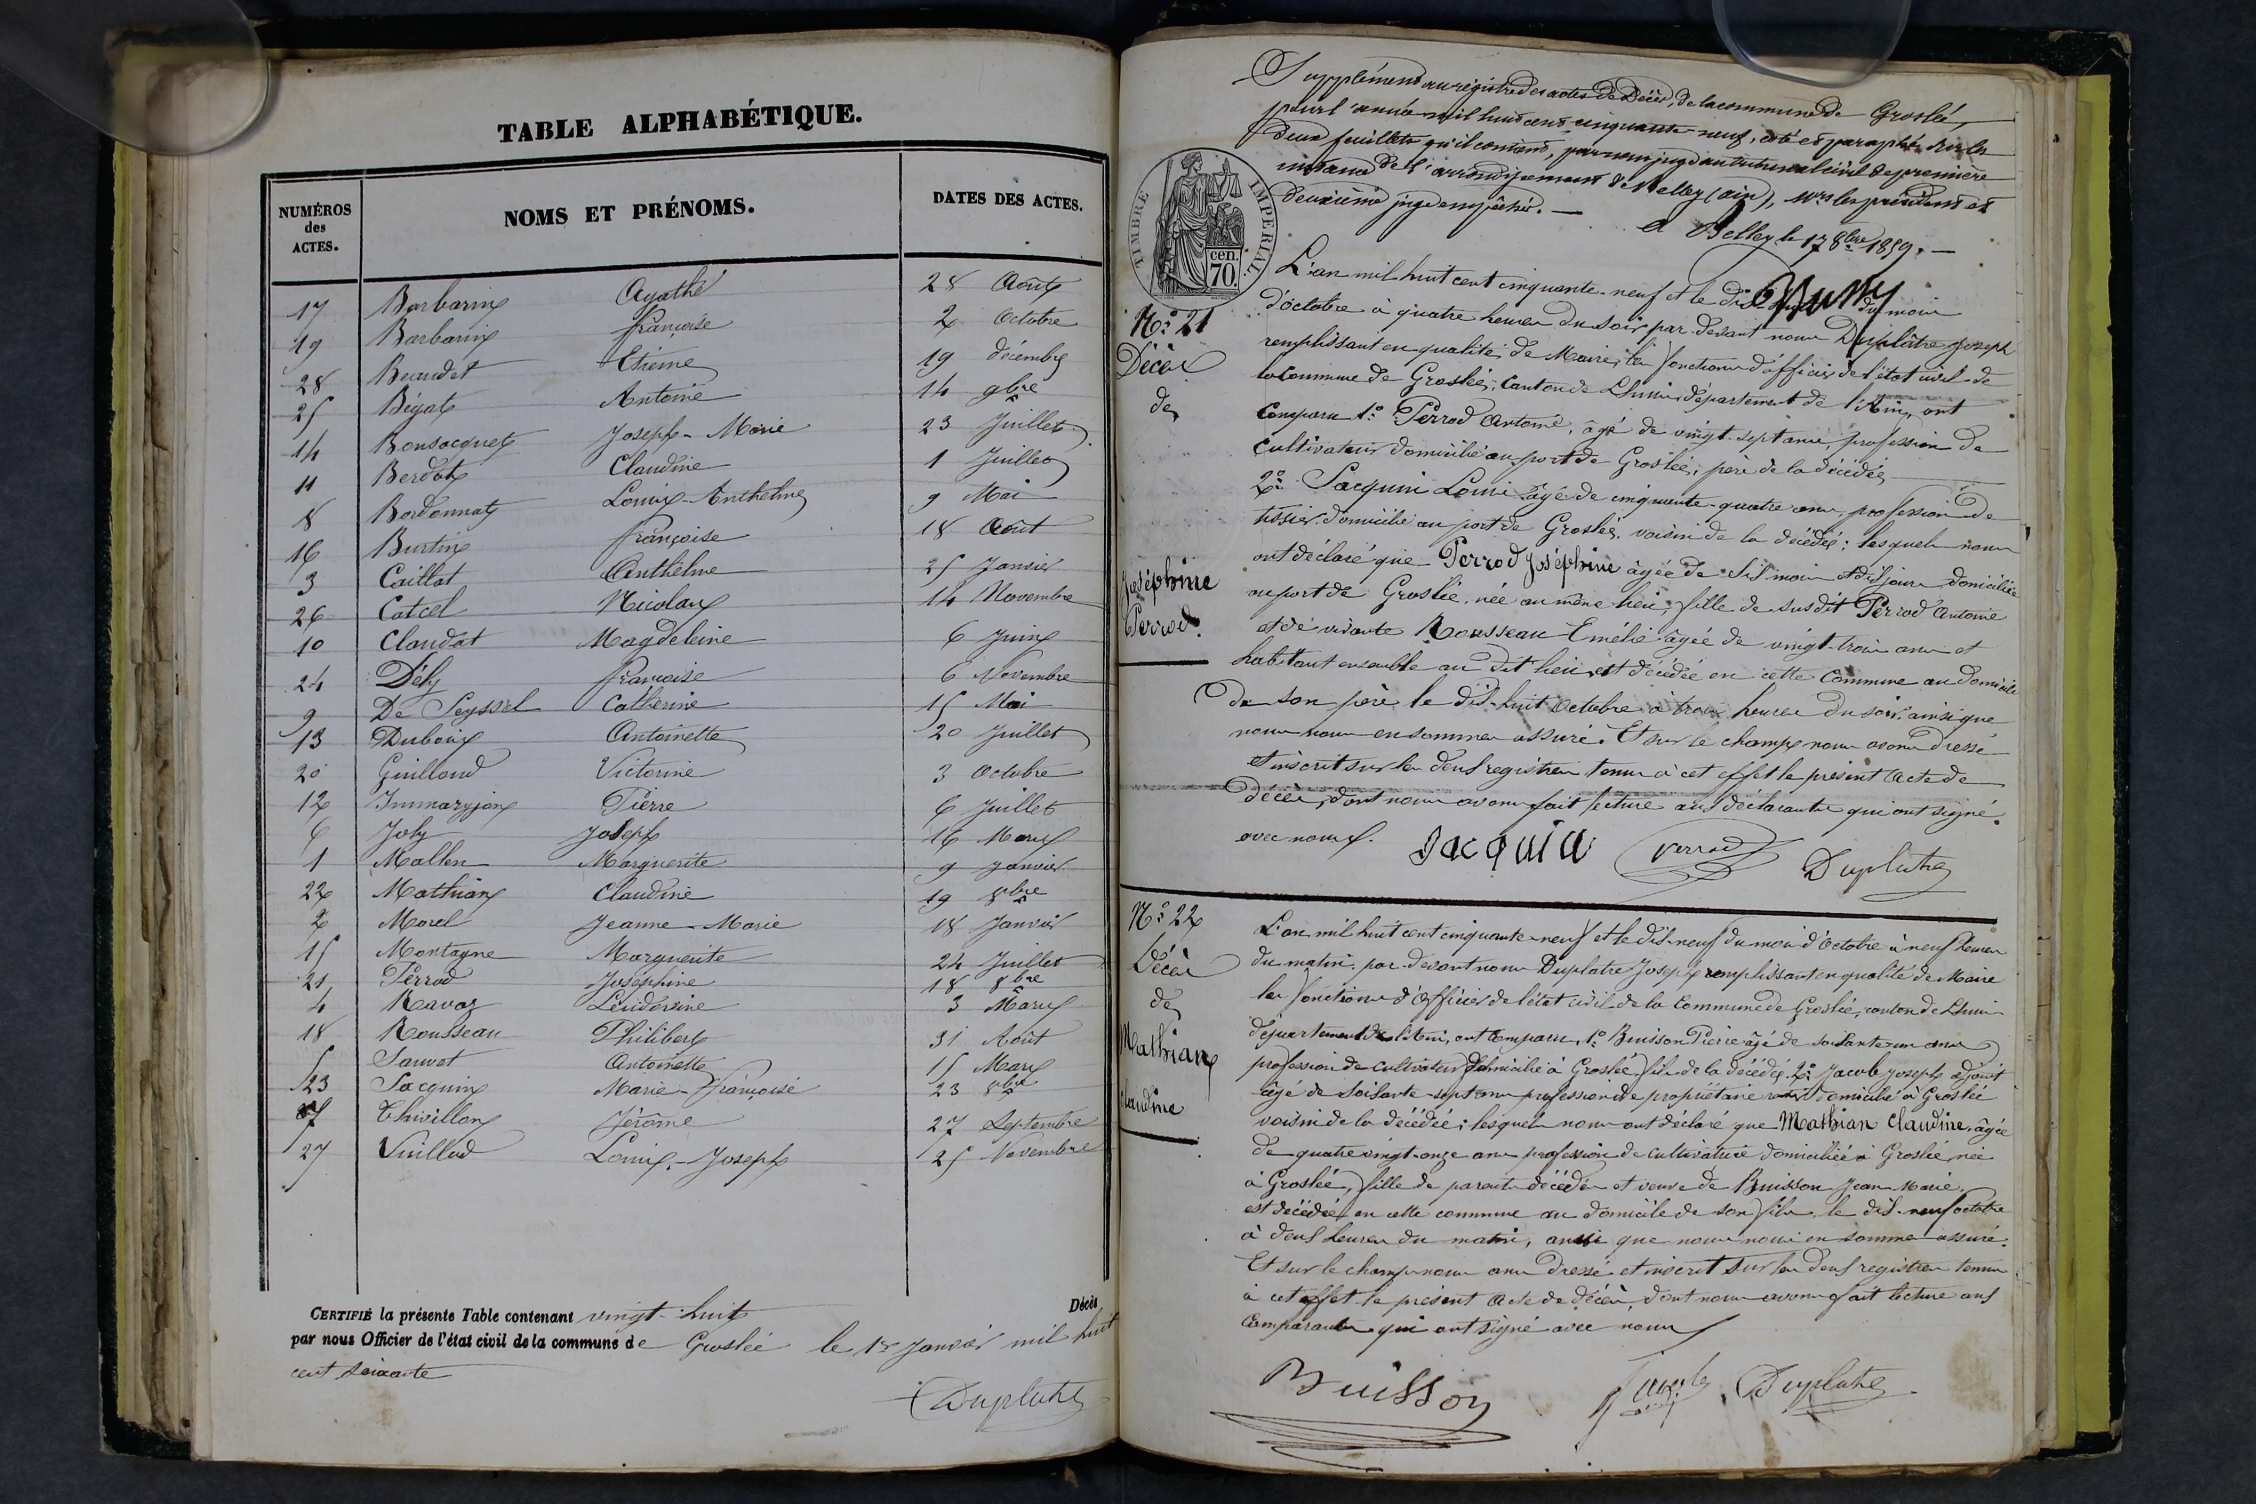 TABLE ALPHABÉTIQUE.
NUMÉROS des ACTES. NOMS ET PRÉNOMS. DATES DES ACTES.
17 Barbarin Agathe 28 Août
19 Barbarin françoise 2 Octobre
28 Beaudet Etienne 19 décembre
25 Bégat Antoine 14 9bre
14 Bonsacquet Joseph-Marie 23 Juillet
11 Berdot Claudine 1 Juillet
8 Bordonnat Louis-Anthelme 9 Mai
16 Burtin françoise 18 Août
3 Caillat Anthelme 25 Janvier
26 Catcel Nicolas 14 Novembre
10 Claudat Magdeleine 6 Juin
24 Dély françoise 6 Novembre
9 De Seyssel Catherine 15 Mai
13 Dubouis Antoinette 20 Juillet
20 Guilloud Victorine 3 Octobre
12 Jummaryjon Pierre 6 Juillet
6 Joly Joseph 16 Mars
1 Mallen Marguerite 9 Janvier
22 Mathian Claudine 19 8bre
2 Morel Jeanne-Marie 18 Janvier
15 Montagne Marguerite 24 Juillet
21 Perrod Joséphine 18 8bre
4 Ravaz 3 Mars
18 Rousseau Philibert 31 Août
5 Sauvet Antoinette 15 Mars
23 Sacquin Marie-françoise 23 8bre
7 Thivillon Jérôme 27 Septembre
27 Vuillod Louis-Joseph 25 Novembre
CERTIFIÉ la présente Table contenant vingt-huit Décès
par nous Officier de l'état civil de la commune de Groslée le 1er Janvier mil huit
cent soixante
Duplatre
Supplément au registre des actes de Décès, de la commune de Groslée,
pour l'année mil huit cent cinquante-neuf, coté et paraphé sur les
deux feuillets qu'il contient, par nous juge au tribunal civil de première
instance de l'arrondissement de Belley (ain), Mrs les président et
deuxième juge empêchés.
A Belley le 17 8bre 1859.
TIMBRE IMPÉRIAL
70 cen.
L'an mil huit cent cinquante-neuf et le dix-huit du mois
N° 21
d'octobre à quatre heures du soir par devant nous Duplâtre Joseph
Décès
remplissant en qualité de Maire, les fonctions d'officier de l'état civil de
de
la Commune de Groslée, Canton de Lhuis, département de l'Ain, ont
Comparu 1° Perrod Antoine, âgé de vingt-sept ans, profession de
Cultivateur domicilié au port de Groslée, père de la décédée
2° Sacquin Louis âgé de cinquante-quatre ans, profession de
tissier domicilié au port de Groslée, voisin de la décédée; lesquels nous
ont déclaré que Perrod Joséphine âgée de six mois et dix jours domiciliée
Joséphine
au port de Groslée, née au même lieu, fille de susdit Perrod Antoine
Perrod.
et de vivante Rousseau Emélie âgée de vingt-trois ans et
habitant ensemble au dit lieu, est décédée en cette Commune au domicile
de son père le dix-huit Octobre à trois heures du soir, ainsi que
nous nous en sommes assuré. Et sur le champ nous avons dressé
et inscrit sur les deux registres tenus à cet effet le présent Acte de
décès, dont nous avons fait lecture aux déclarants qui ont signé
avec nous. Jacquin Perrod Duplatre
N° 22
L'an mil huit cent cinquante-neuf et le dix-neuf du mois d'Octobre à neuf heures
Décès
du matin par devant nous Duplatre Joseph remplissant en qualité de Maire
de
les fonctions d'Officier de l'état civil de la Commune de Groslée, canton de Lhuis
Mathian
département de l'Ain, ont comparu, 1° Buisson Pierre âgé de soixante-un ans
profession de cultivateur domicilié à Groslée, fils de la décédée. 2° Jacob Joseph adjoint
Claudine
âgé de soixante-sept ans profession de propriétaire domicilié à Groslée
voisin de la décédée; lesquels nous ont déclaré que Mathian Claudine, âgée
de quatre vingt-onze ans profession de cultivatrice domiciliée à Groslée, née
à Groslée, fille de parents décédés et veuve de Buisson Jean Marie.
est décédée en cette commune au domicile de son fils, le dix-neuf octobre
à deux heures du matin, ainsi que nous nous en sommes assuré.
Et sur le champ nous avons dressé et inscrit sur les deux registres tenus
à cet effet le présent Acte de décès, dont nous avons fait lecture aux
Comparants qui ont signé avec nous
Buisson Jacob Duplatre